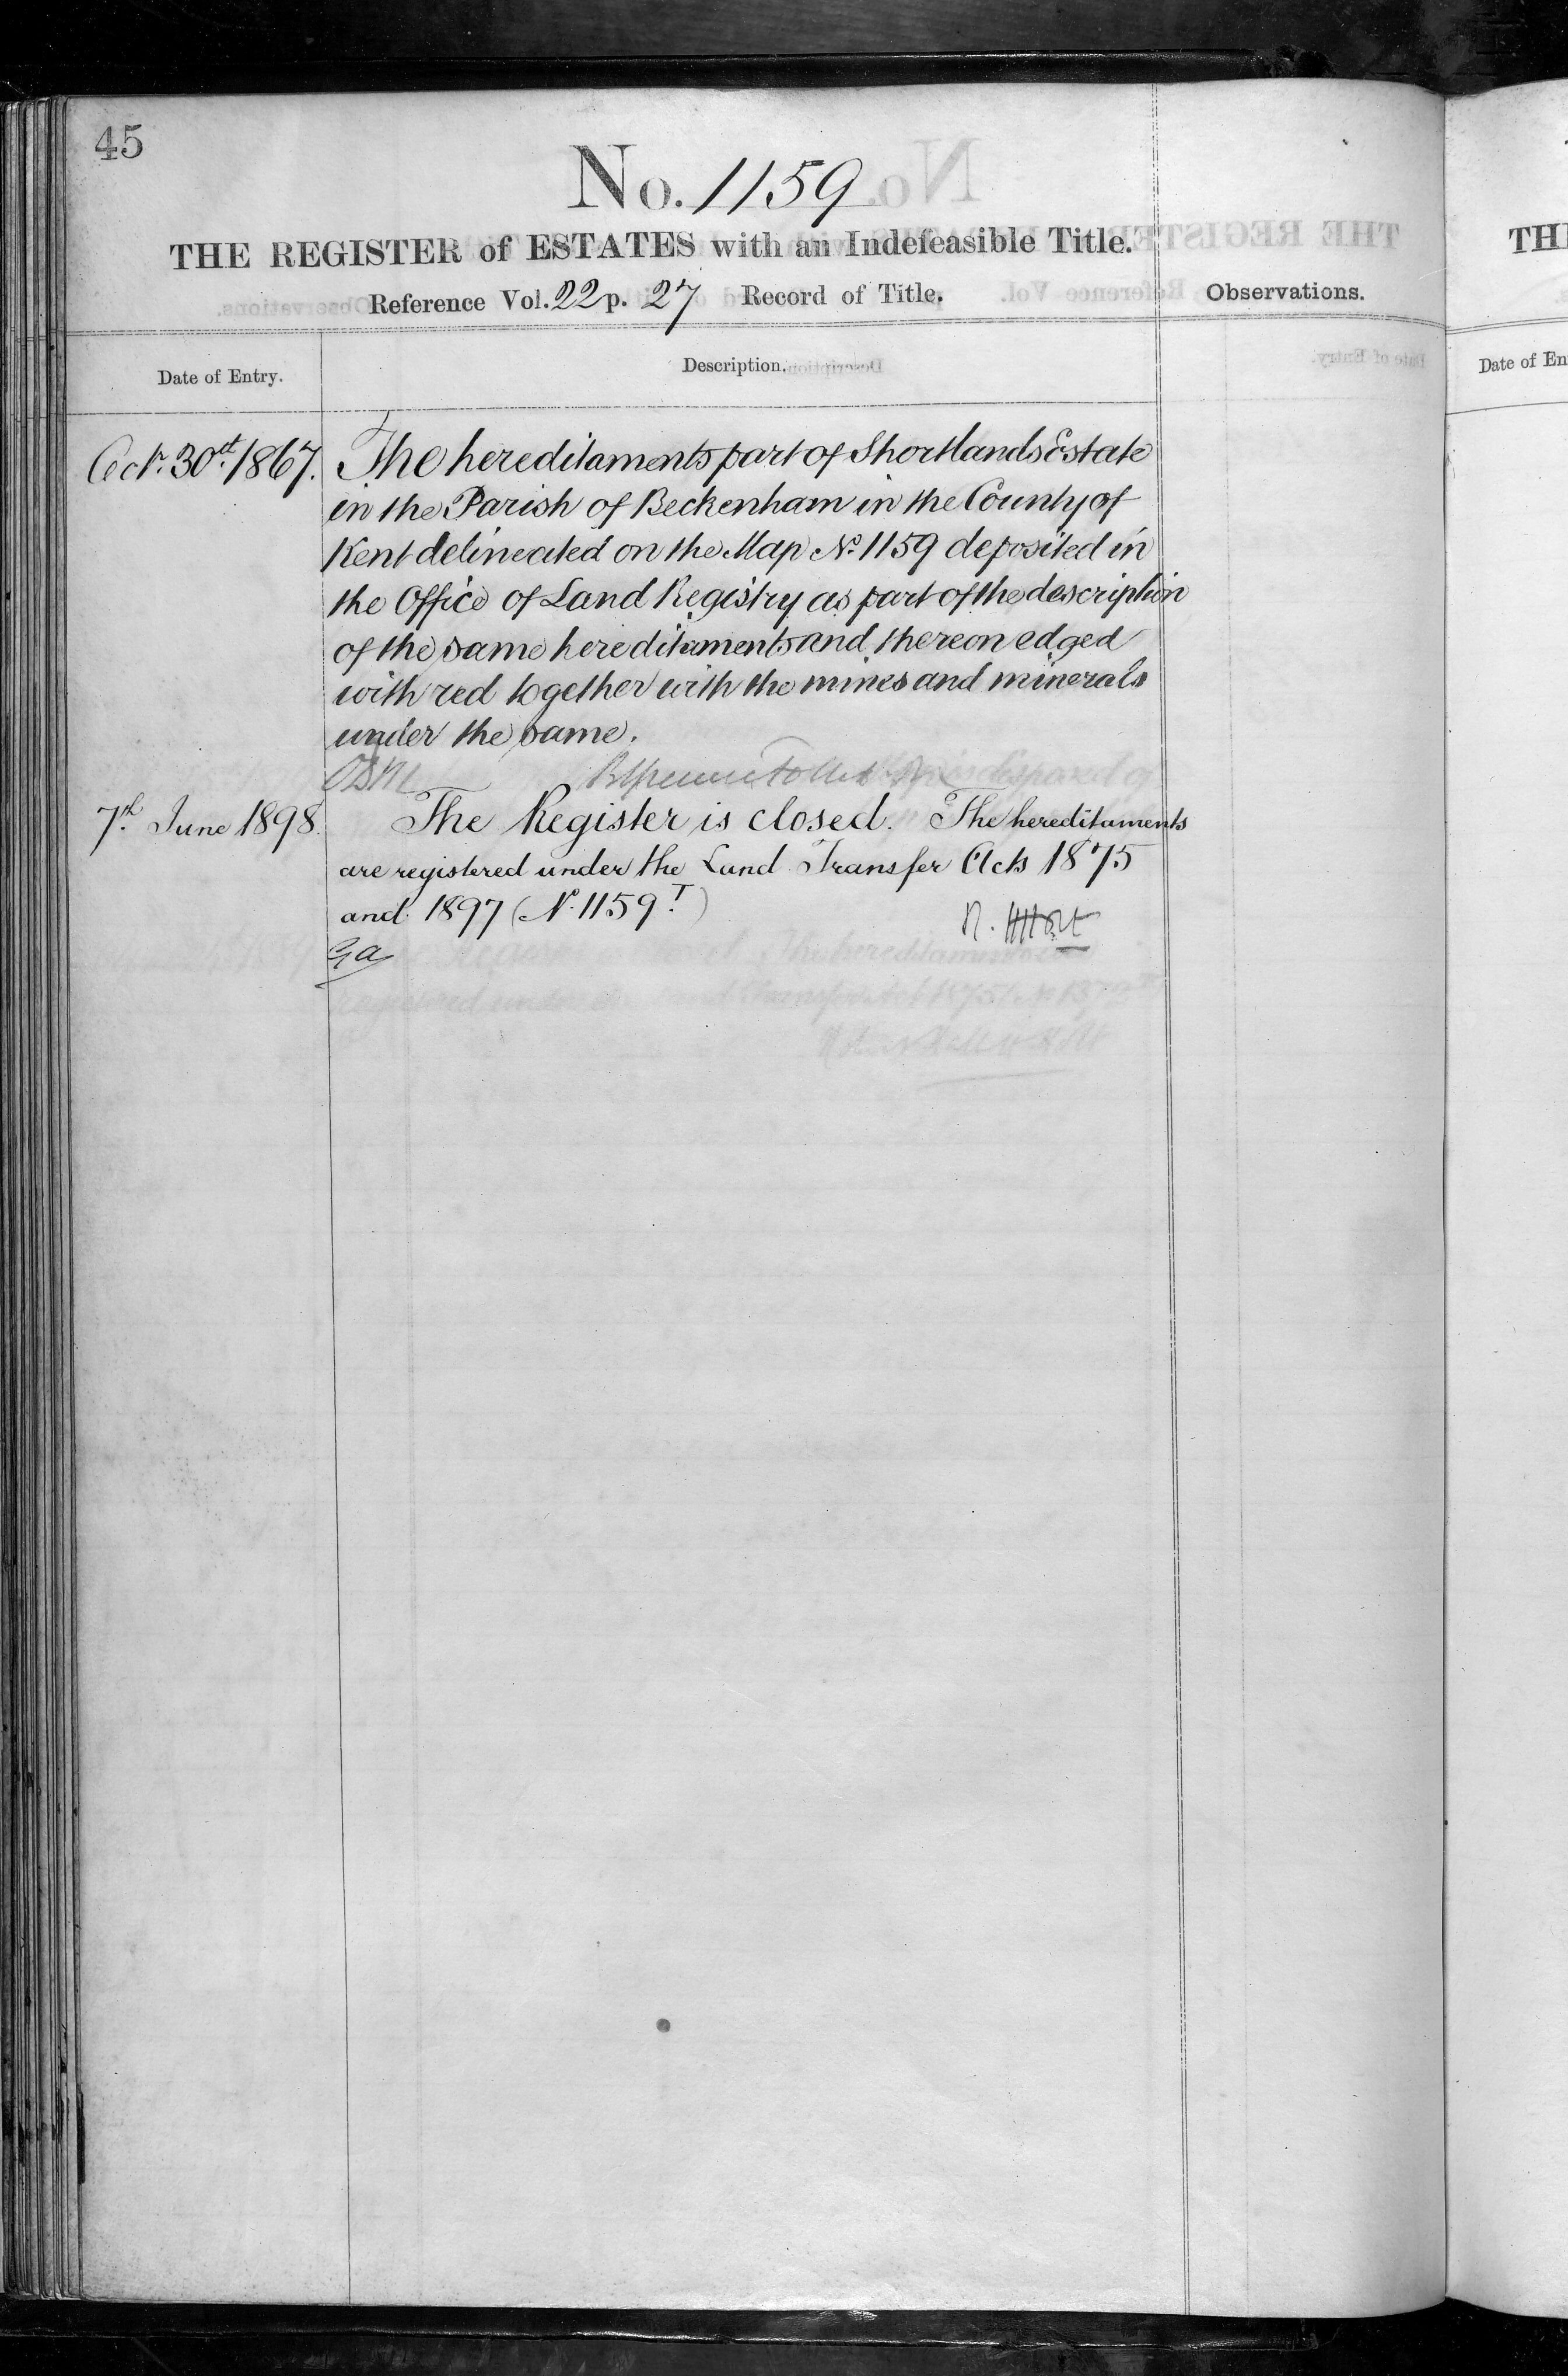 45
No. 1159
THE REGISTER of ESTATES with an Indefeasible Title.
Reference Vol. 22 p. 27 Record of Title.
Observations.
Date of Entry.
Description.
Octr. 30st. 1867.
The hereditaments part of Shortlands Estate
in the Parish of Beckenham in the County of
Kent delineated on the Map No. 1159 deposited in
the Office of Land Registry as part of the description
of the same hereditaments and thereon edged
with red together with the mines and minerals
under the same.
7th. June 1898.
The Register is closed. The hereditaments
are registered under the Land Transfer Acts 1875
and 1897 (No. 1159 T)
TH
Date of En